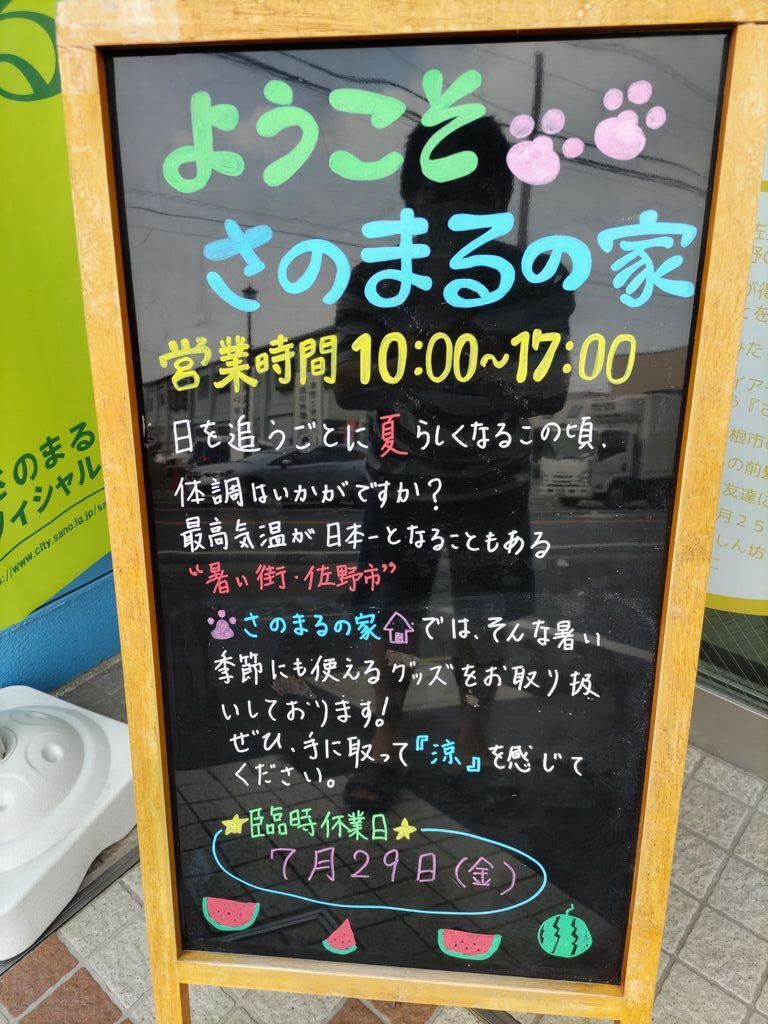 ようこそ
さのまるの家
営業時間 10:00~17:00
日を追うごとに夏らしくなるこの頃、
体調はいかがですか?
最高気温が日本一となることもある
"暑い街・佐野市"
さのまるの家では、そんな暑い
季節にも使えるグッズをお取り扱
いしております!
ぜひ、手に取って『涼』を感じて
ください。
臨時休業日
7月29日(金)
さのまる
www.city.sano.lg.jp/sa